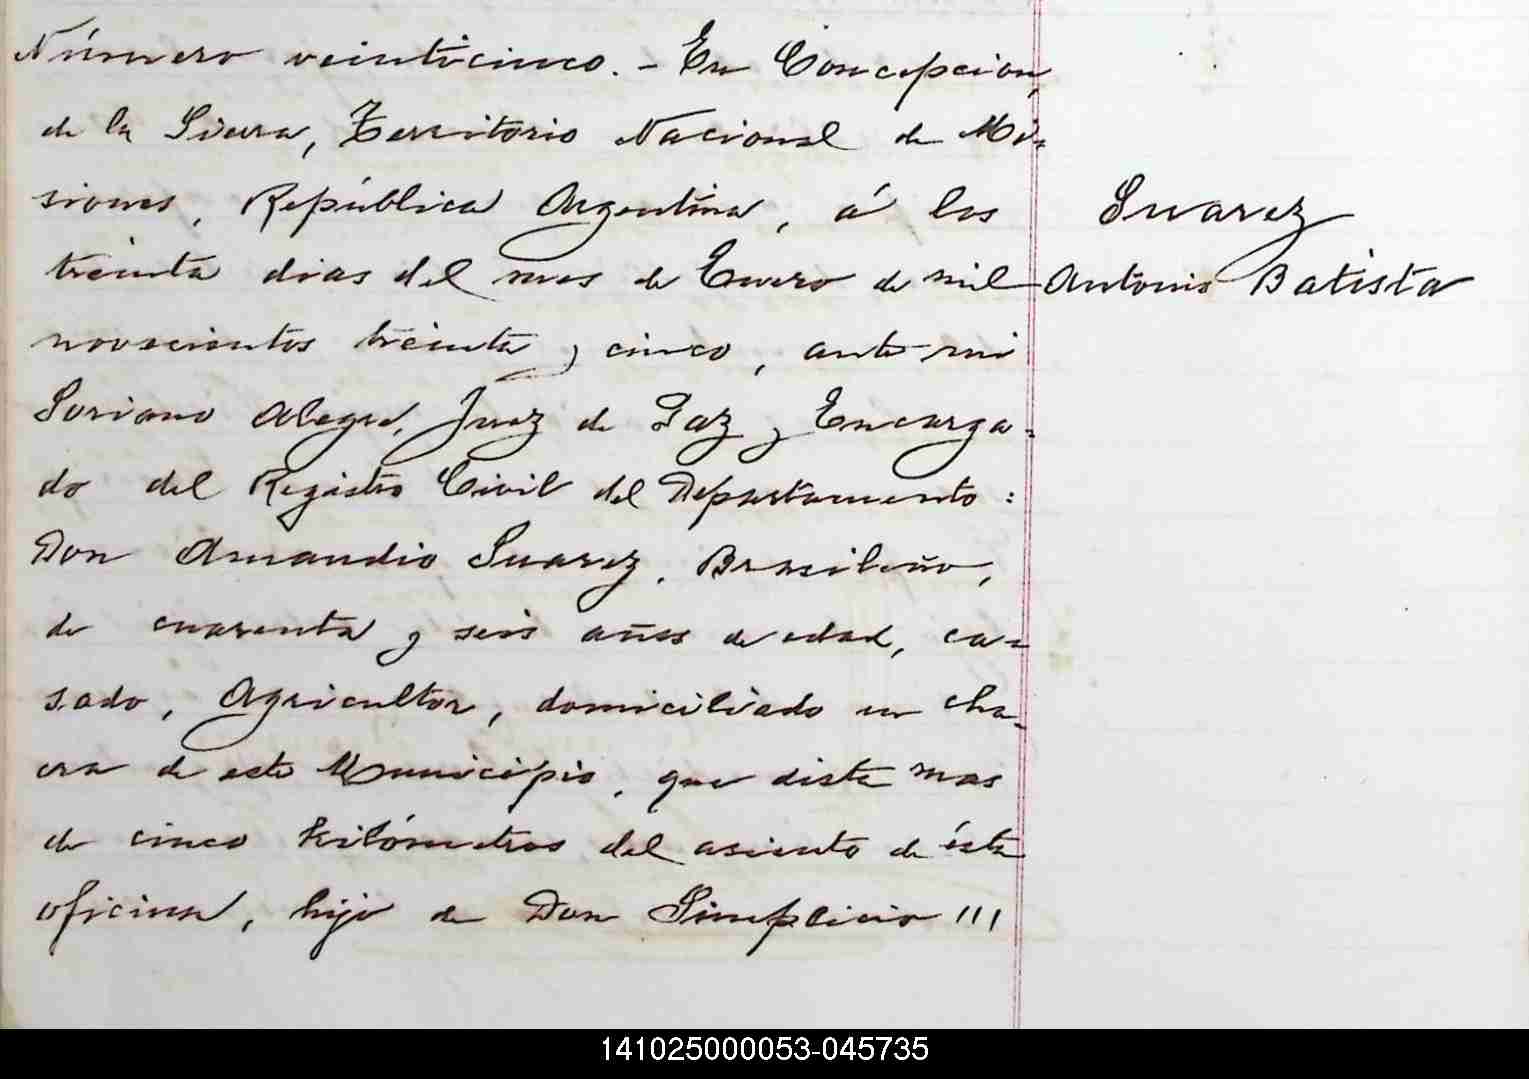 Número veinticinco. - En Concepcion,
de la Sierra, Territorio Nacional de Mi-
siones, República Argentina, á los
treinta dias del mes de Enero de mil
novecientos treinta y cinco, ante mi
Soriano Alegre, Juez de Paz y Encarga-
do del Registro Civil del Departamento:
Don Amandio Suarez, Brasileño,
de cuarenta y seis años de edad, ca-
sado, Agricultor, domiciliado en cha-
cra de este Municipio, que dista mas
de cinco kilómetros del asiento de ésta
oficina, hijo de Don Simplicio !!!
Suarez
Antonio Batista
141025000053-045735